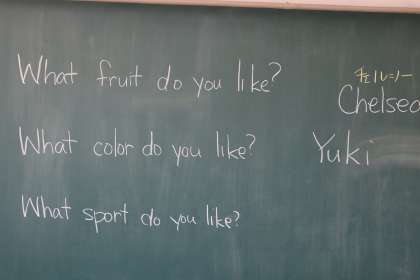 What fruit do you like?
What color do you like?
What sport do you like?
チェルシー
Chelsea
Yuki